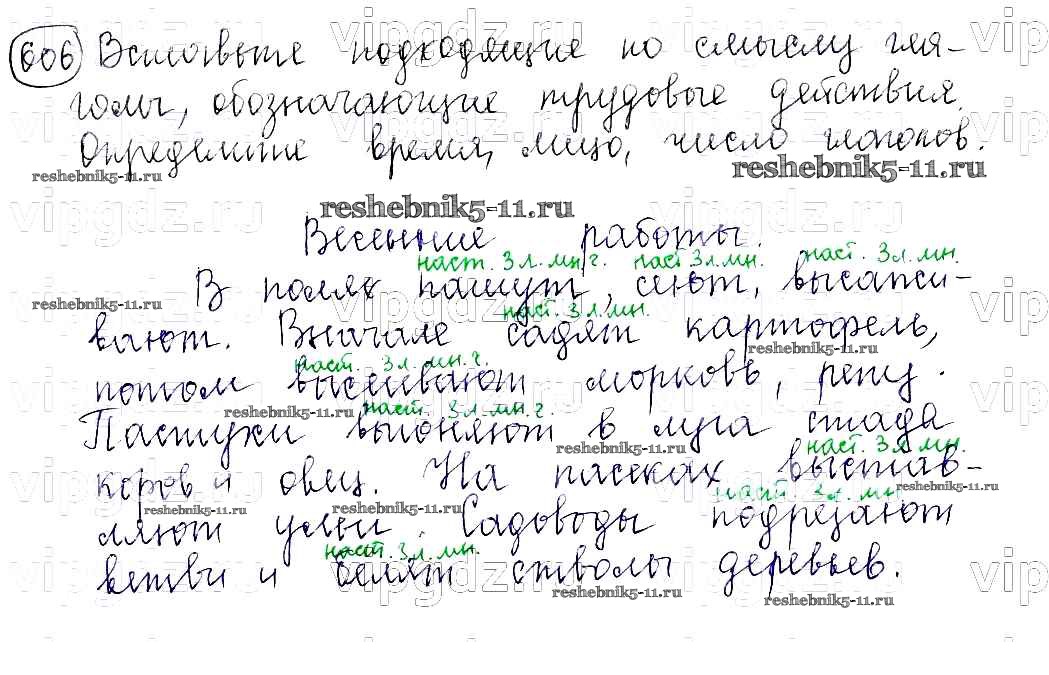 606 Вставьте подходящие по смыслу гла-
голы, обозначающие трудовые действия.
Определите время, лицо, число глаголов.
reshebnik5-11.ru reshebnik5-11.ru
reshebnik5-11.ru
Весенние работы.
наст. 3 л. мн. г. наст 3 л. мн. наст. 3 л. мн.
В полях пашут, сеют, высажи-
reshebnik5-11.ru наст. 3 л. мн.
вают. Вначале садят картофель,
reshebnik5-11.ru
наст. 3 л. мн. ч.
потом высеивают морковь, репу.
reshebnik5-11.ru наст. 3 л. мн. г.
Пастухи выгоняют в луга стада
reshebnik5-11.ru наст 3 л. мн.
коров и овец. На пасеках выстав-
reshebnik5-11.ru reshebnik5-11.ru наст. 3 л. мн. reshebnik5-11.ru
ляют ульи. Садоводы подрезают
наст. 3 л. мн.
ветви и белят стволы деревьев.
reshebnik5-11.ru reshebnik5-11.ru